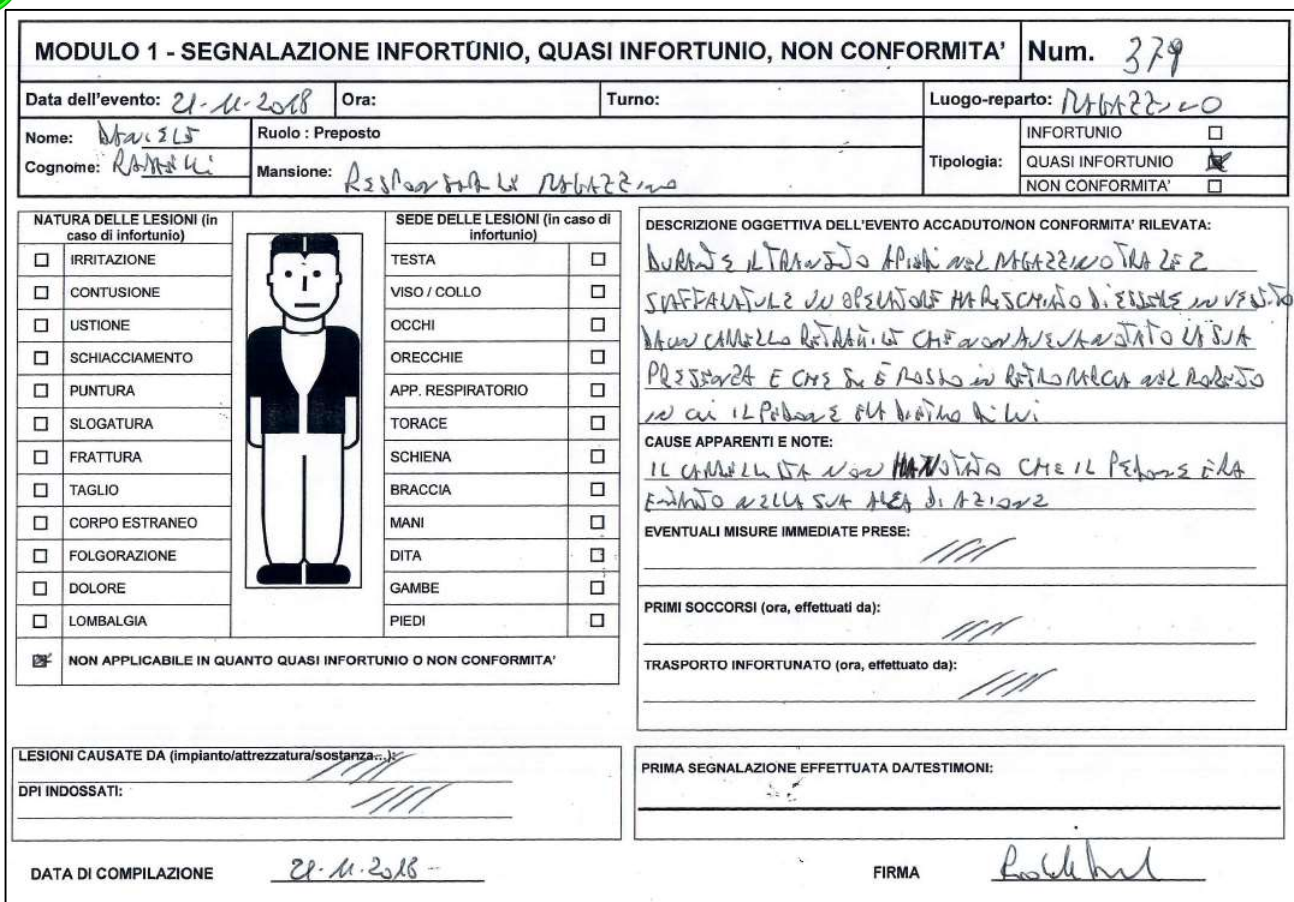 MODULO 1 - SEGNALAZIONE INFORTUNIO, QUASI INFORTUNIO, NON CONFORMITA'
Num. 379
Data dell'evento: 21-11-2018
Ora:
Turno:
Luogo-reparto: MAGAZZINO
Nome: DANIELE
Cognome:
Ruolo : Preposto
Mansione: RESPONSABILE MAGAZZINO
Tipologia:
INFORTUNIO ☐
QUASI INFORTUNIO ☒
NON CONFORMITA' ☐
NATURA DELLE LESIONI (in
caso di infortunio)
☐ IRRITAZIONE
☐ CONTUSIONE
☐ USTIONE
☐ SCHIACCIAMENTO
☐ PUNTURA
☐ SLOGATURA
☐ FRATTURA
☐ TAGLIO
☐ CORPO ESTRANEO
☐ FOLGORAZIONE
☐ DOLORE
☐ LOMBALGIA
☒ NON APPLICABILE IN QUANTO QUASI INFORTUNIO O NON CONFORMITA'
SEDE DELLE LESIONI (in caso di
infortunio)
TESTA ☐
VISO / COLLO ☐
OCCHI ☐
ORECCHIE ☐
APP. RESPIRATORIO ☐
TORACE ☐
SCHIENA ☐
BRACCIA ☐
MANI ☐
DITA ☐
GAMBE ☐
PIEDI ☐
DESCRIZIONE OGGETTIVA DELL'EVENTO ACCADUTO/NON CONFORMITA' RILEVATA:
DURANTE IL TRANSITO A PIEDI NEL MAGAZZINO TRA LE 2
SCAFFALATURE UN OPERATORE HA RISCHIATO DI ESSERE INVESTITO
DA UN CARRELLO RETRATTILE CHE NON AVEVA NOTATO LA SUA
PRESENZA E CHE SI È MOSSO IN RETROMARCIA NEL MOMENTO
IN CUI IL PEDONE ERA DIETRO DI LUI
CAUSE APPARENTI E NOTE:
IL CARRELLISTA NON HA NOTATO CHE IL PEDONE ERA
ENTRATO NELLA SUA AREA DI AZIONE
EVENTUALI MISURE IMMEDIATE PRESE:
////
PRIMI SOCCORSI (ora, effettuati da):
////
TRASPORTO INFORTUNATO (ora, effettuato da):
////
LESIONI CAUSATE DA (impianto/attrezzatura/sostanza...): ////
DPI INDOSSATI: ////
PRIMA SEGNALAZIONE EFFETTUATA DA/TESTIMONI:
DATA DI COMPILAZIONE 21-11-2018-
FIRMA